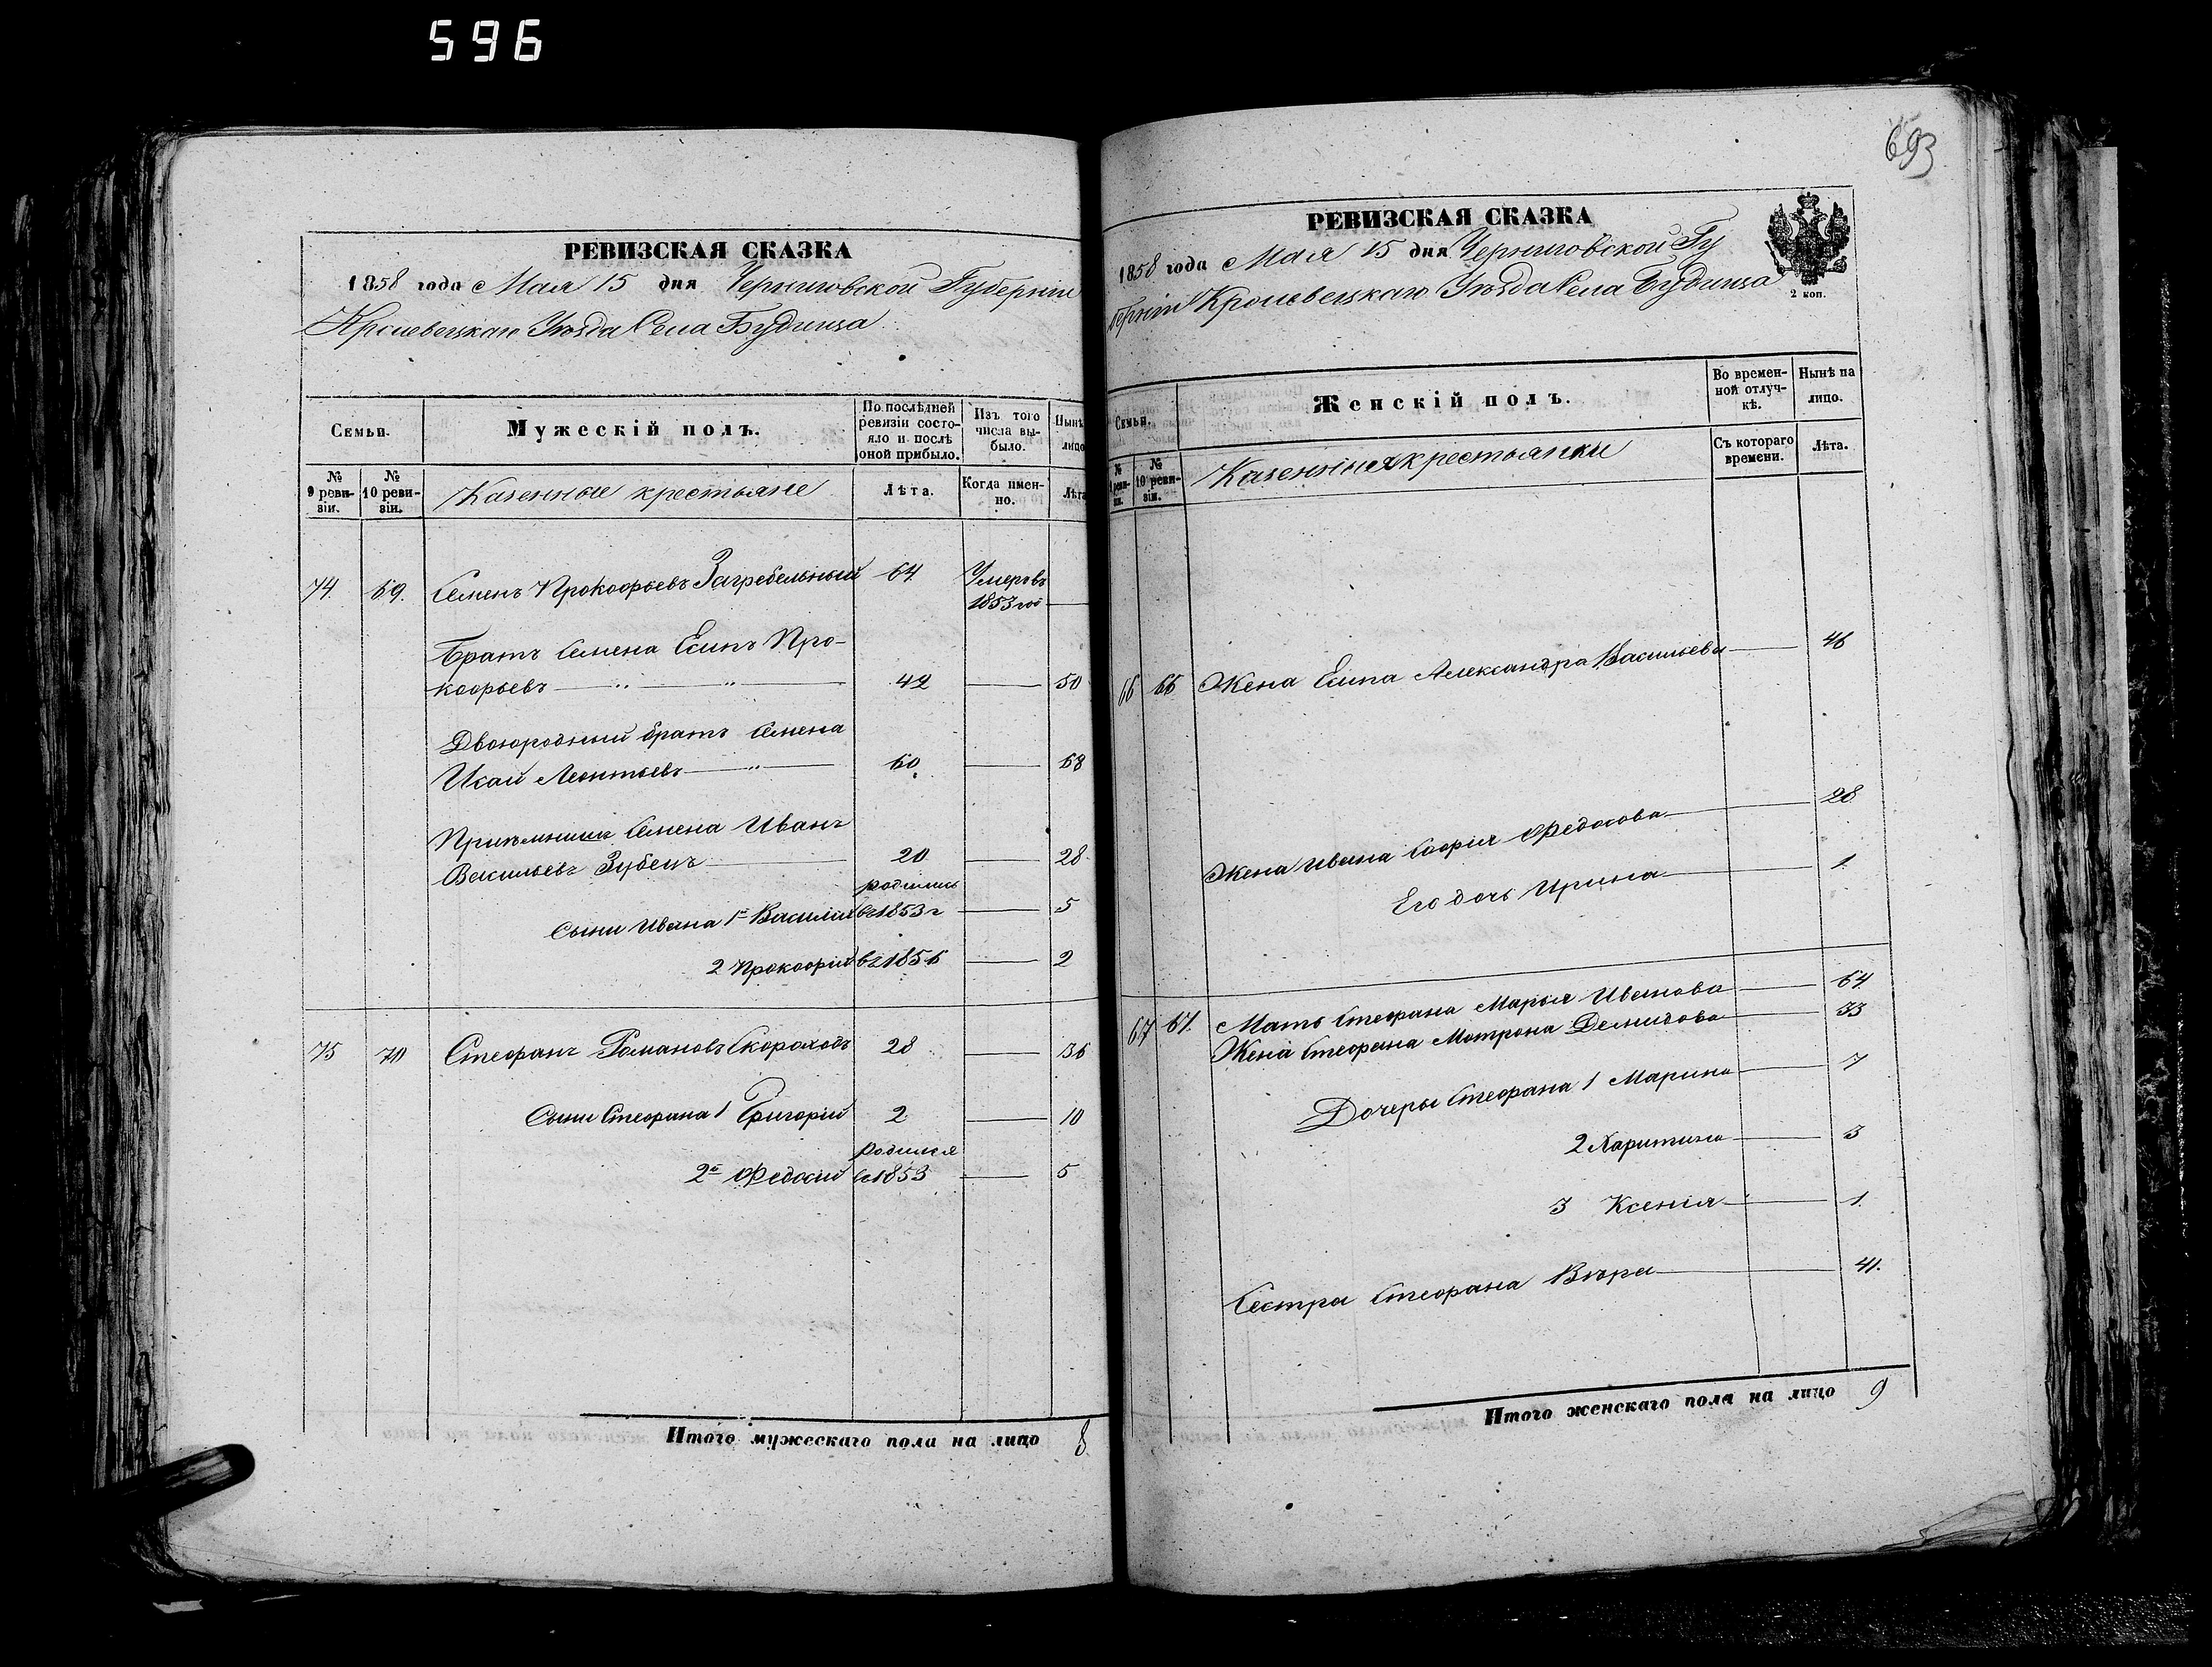 596
693
РЕВИЗСКАЯ СКАЗКА
1858 года Мая 15 дня Черниговской Губерніи
Кролевецкаго Уѣзда Села Будища
Семьи.
Мужескій полъ.
По послѣдней ревизіи состояло и послѣ оной прибыло.
Изъ того числа выбыло.
Нынѣ лицо
№ 9 ревизіи.
№ 10 ревизіи.
Казенные крестьяне
Лѣта.
Когда именно.
Лѣта
74. 69. Семенъ Прокофьевъ Загребельный 64 Умеръ въ
1853 год
Братъ Семена Есипъ Про-
кофьевъ — " — " — 42 — 50
Двоюродный братъ Семена
Исай Леонтьевъ — " — 60 — 68
Пріемышъ Семена Иванъ
Васильевъ Зубецъ — 20 — 28
родились
Сыни Ивана 1й Василій въ 1853 г — 5
2 Прокофій въ 1856 — 2
75 70 Стефанъ Романовъ Скороходъ 28 — 36
Сыни Стефана 1 Григорій 2 — 10
родился
2й Федосій въ 1853 — 5
Итого мужескаго пола на лицо 8
РЕВИЗСКАЯ СКАЗКА
1858 года Мая 15 дня Черниговской Гу
берніи Кролевецкаго Уѣзда Села Будища
2 коп.
Семьи.
Женскій полъ.
Во временной отлучкѣ.
Нынѣ на лицо.
№ 9 ревизіи.
№ 10 ревизіи.
Казенныя крестьянки
Съ котораго времени.
Лѣта.
66 66 Жена Есипа Александра Васильева — 46
Жена Ивана Софія Федосова — 28
Его дочь Ирина — 1.
67 67. Мать Стефана Марья Иванова — 64
Жена Стефана Мотрона Демидова — 33
Дочеры Стефана 1 Марина — 7
2 Харитина — 3
3 Ксенія — 1.
Сестра Стефана Вѣра — 41.
Итого женскаго пола на лицо 9